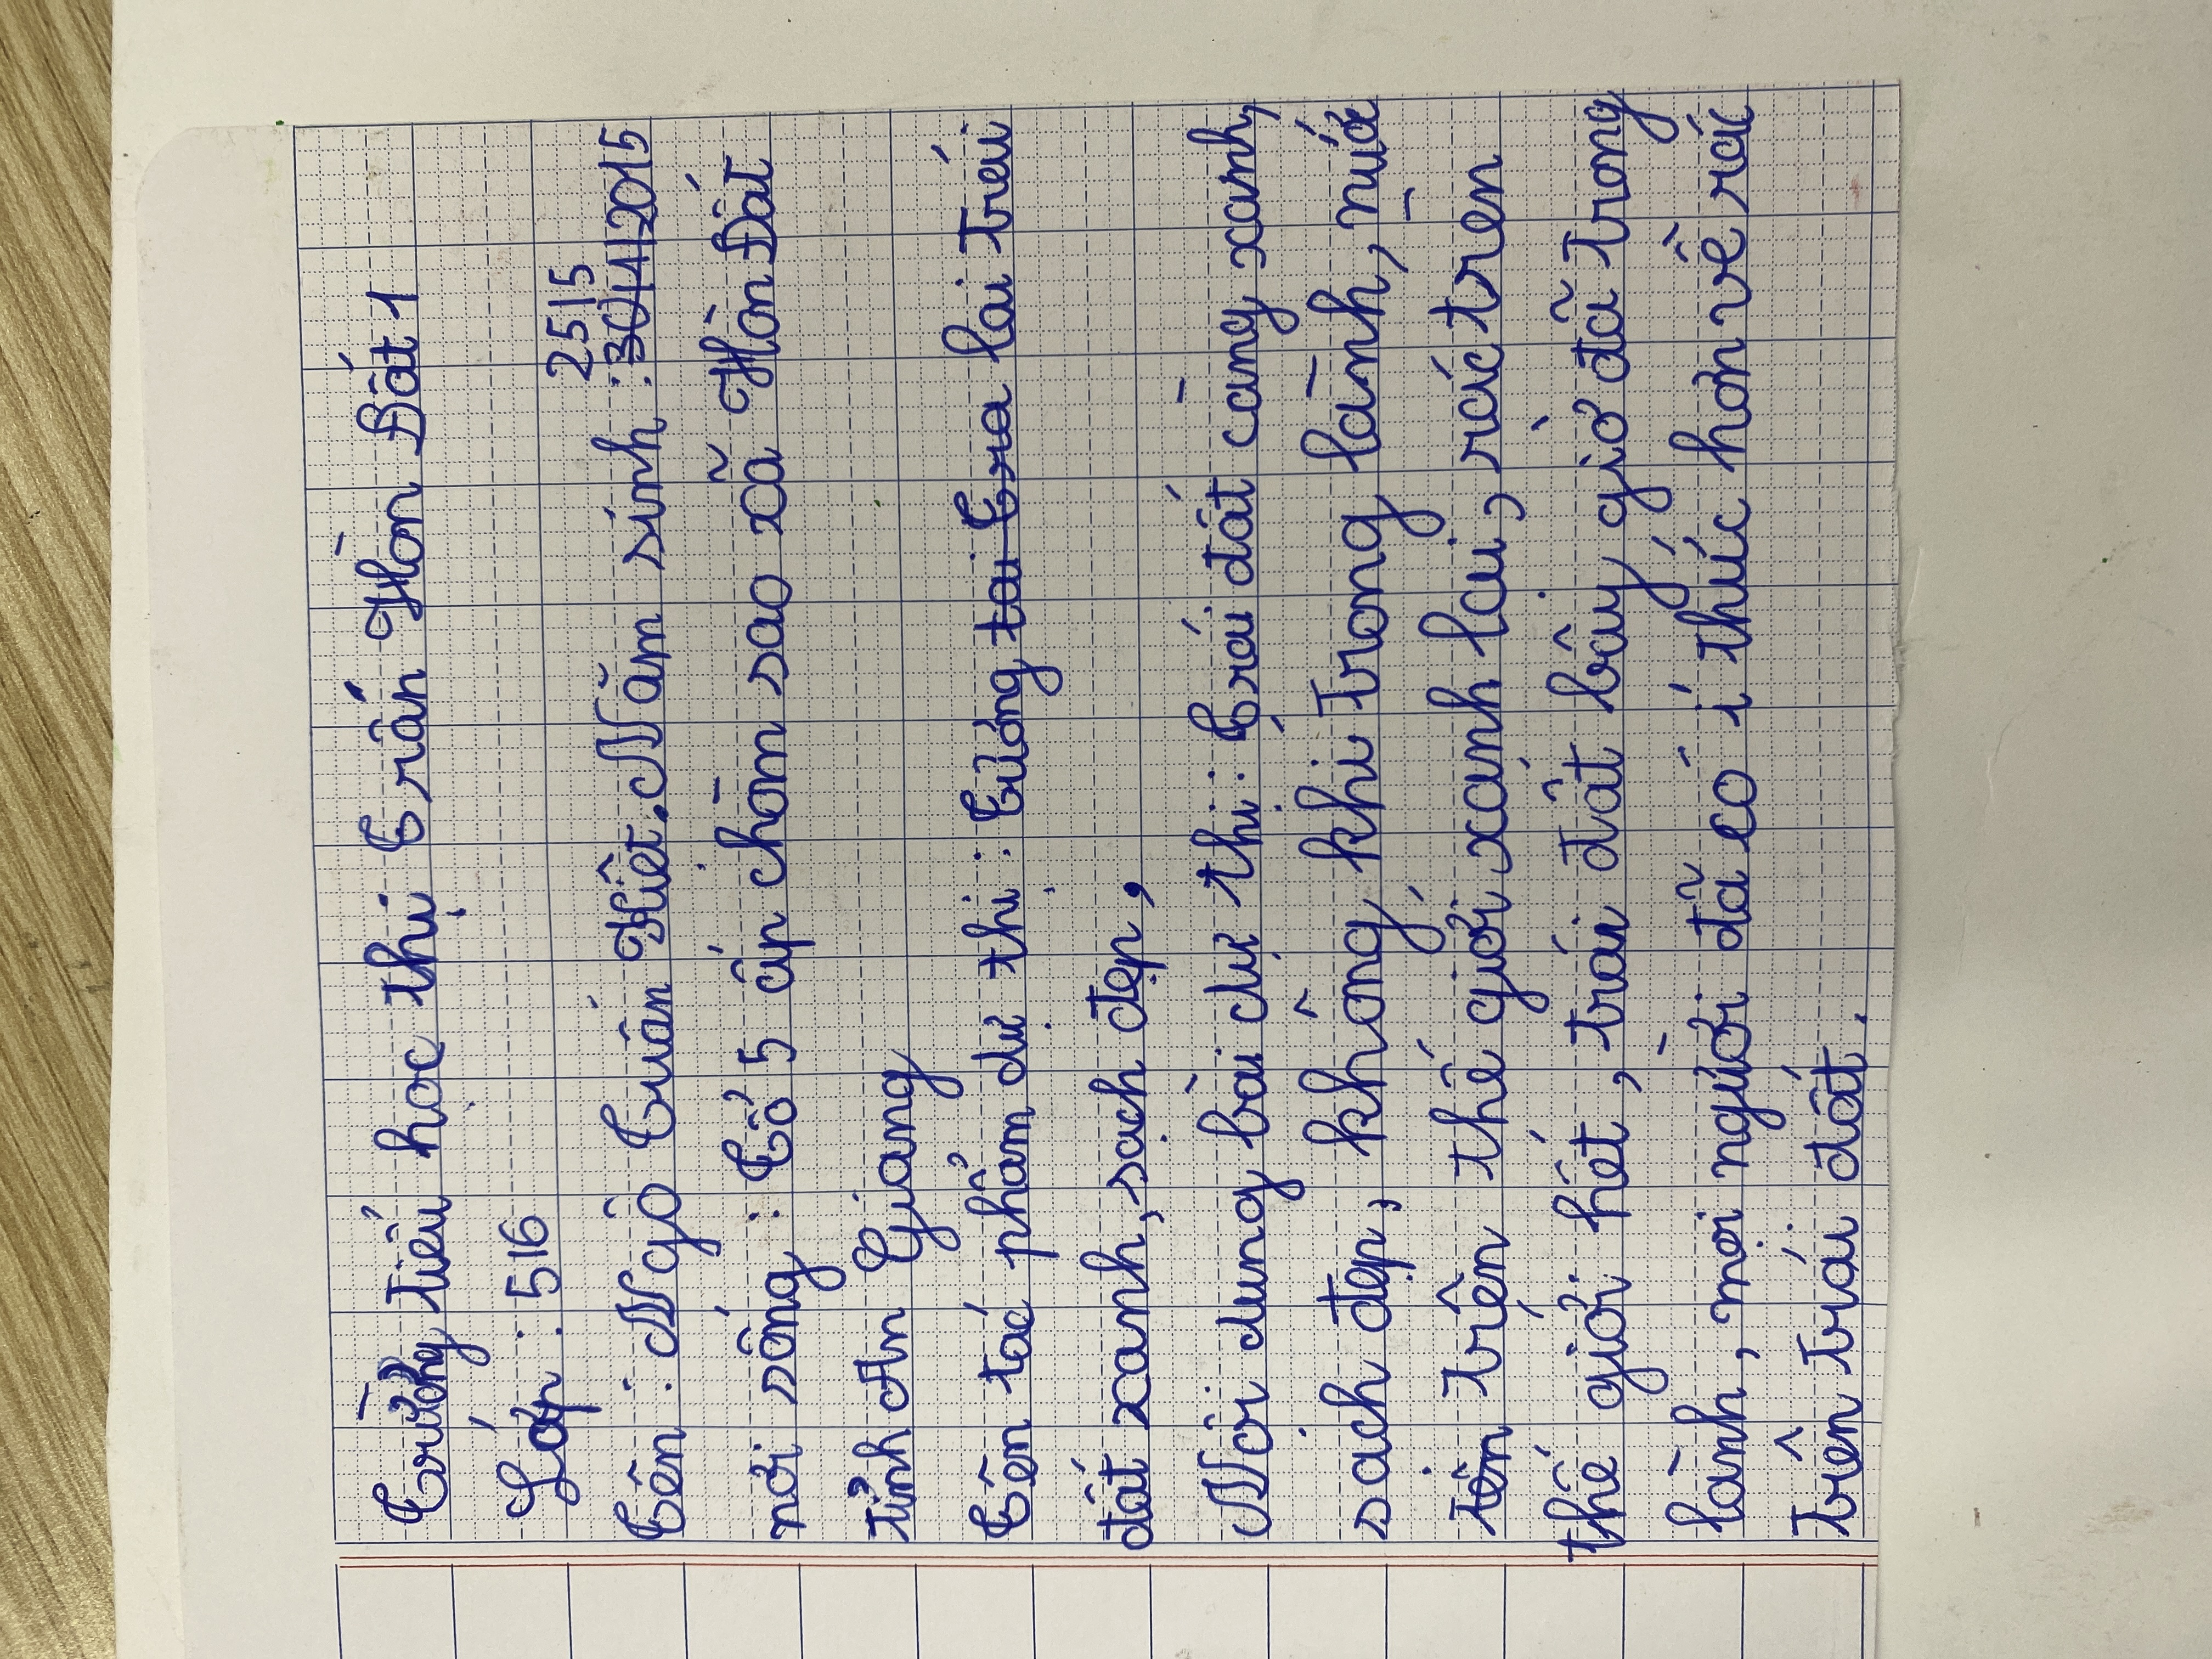 Trường tiểu học thị Trấn Hòn Đất 1
Lớp : 5/6
25/5
Tên : Ngô Tuấn Kiệt. Năm sinh : 30/4/2015
nơi sống : Tổ 5 ấp chòm sao xã Hòn Đất
tỉnh An Giang
Tên tác phẩm dự thi : Tương tai Tra lai trái
đất xanh, sạch đẹp,
Nội dung bài dự thi : Trái đất càng xanh,
sạch đẹp, không khí trong lành, nước
trên thế giới xanh lại, rác trên
thế giới hết, trái đất bây giờ đã trong
lành, mọi người đã có í thức hơn về rác
trên trái đất.